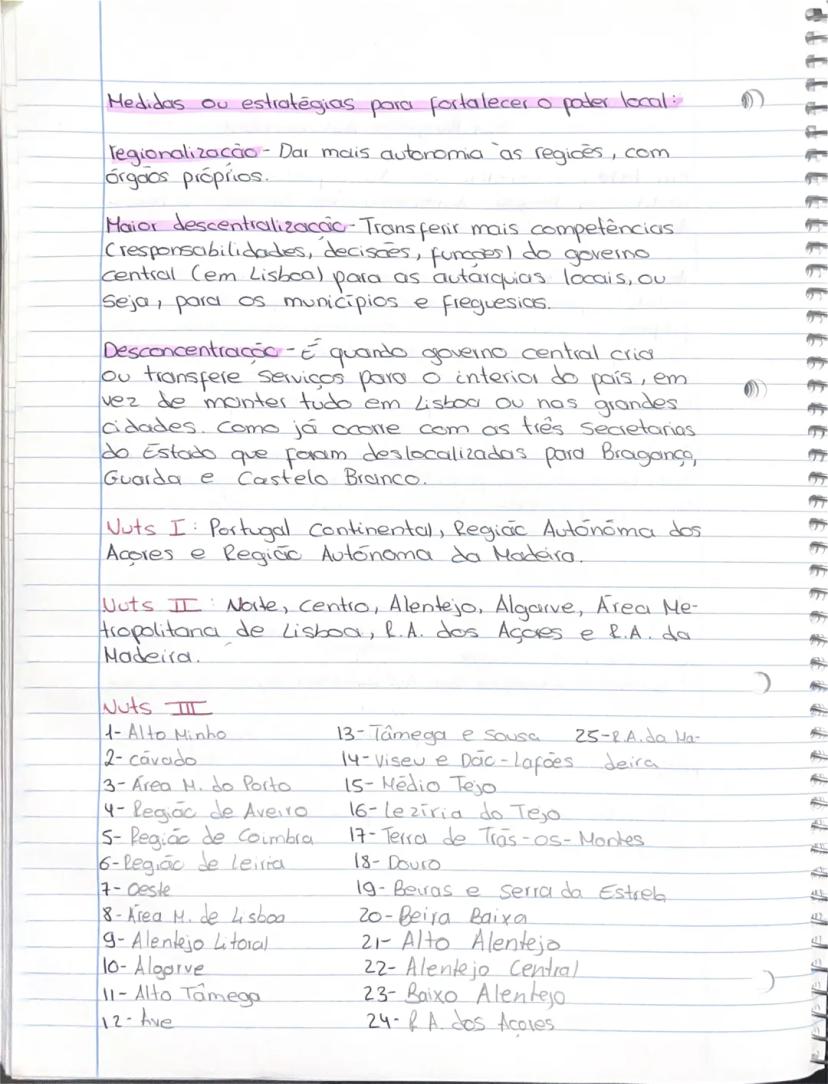 Medidas ou estratégias para fortalecer o poder local:
regionalização - Dar mais autonomia às regiões, com
órgãos próprios.
Maior descentralização - Transferir mais competências
(responsabilidades, decisões, funções) do governo
central (em Lisboa) para as autárquias locais, ou
seja, para os municípios e freguesias.
Desconcentração - É quando governo central cria
ou transfere serviços para o interior do país, em
vez de manter tudo em Lisboa ou nas grandes
cidades. Como já ocorre com as três Secretarias
do Estado que foram deslocalizadas para Bragança,
Guarda e Castelo Branco.
Nuts I: Portugal Continental, Região Autónóma dos
Açores e Região Autónoma da Madeira.
Nuts II: Norte, Centro, Alentejo, Algarve, Área Me-
tropolitana de Lisboa, R.A. dos Açores e R.A. da
Madeira.
Nuts III
1- Alto Minho
2- cávado
3- Área M. do Porto
4- Região de Aveiro
5- Região de Coimbra
6- Região de Leiria
7- Oeste
8- Área M. de Lisboa
9- Alentejo Litoral
10- Algarve
11- Alto Tâmega
12- Ave
13- Tâmega e Sousa
14- Viseu e Dão-Lafões
15- Médio Tejo
16- Lezíria do Tejo
17- Terra de Trás-os-Montes
18- Douro
19- Beiras e Serra da Estrela
20- Beira Baixa
21- Alto Alentejo
22- Alentejo Central
23- Baixo Alentejo
24- R.A. dos Açores
25- R.A. da Ma-
deira